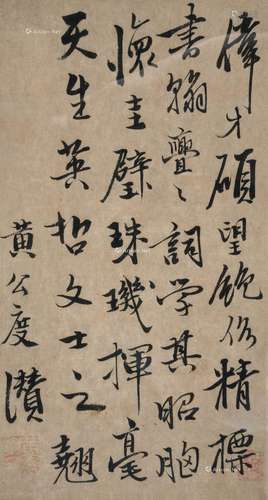 偉才碩望精標
書翰亹〻詞学其昭胸
懷圭璧珠璣揮毫
天生英哲文士之翹
黄公度讚